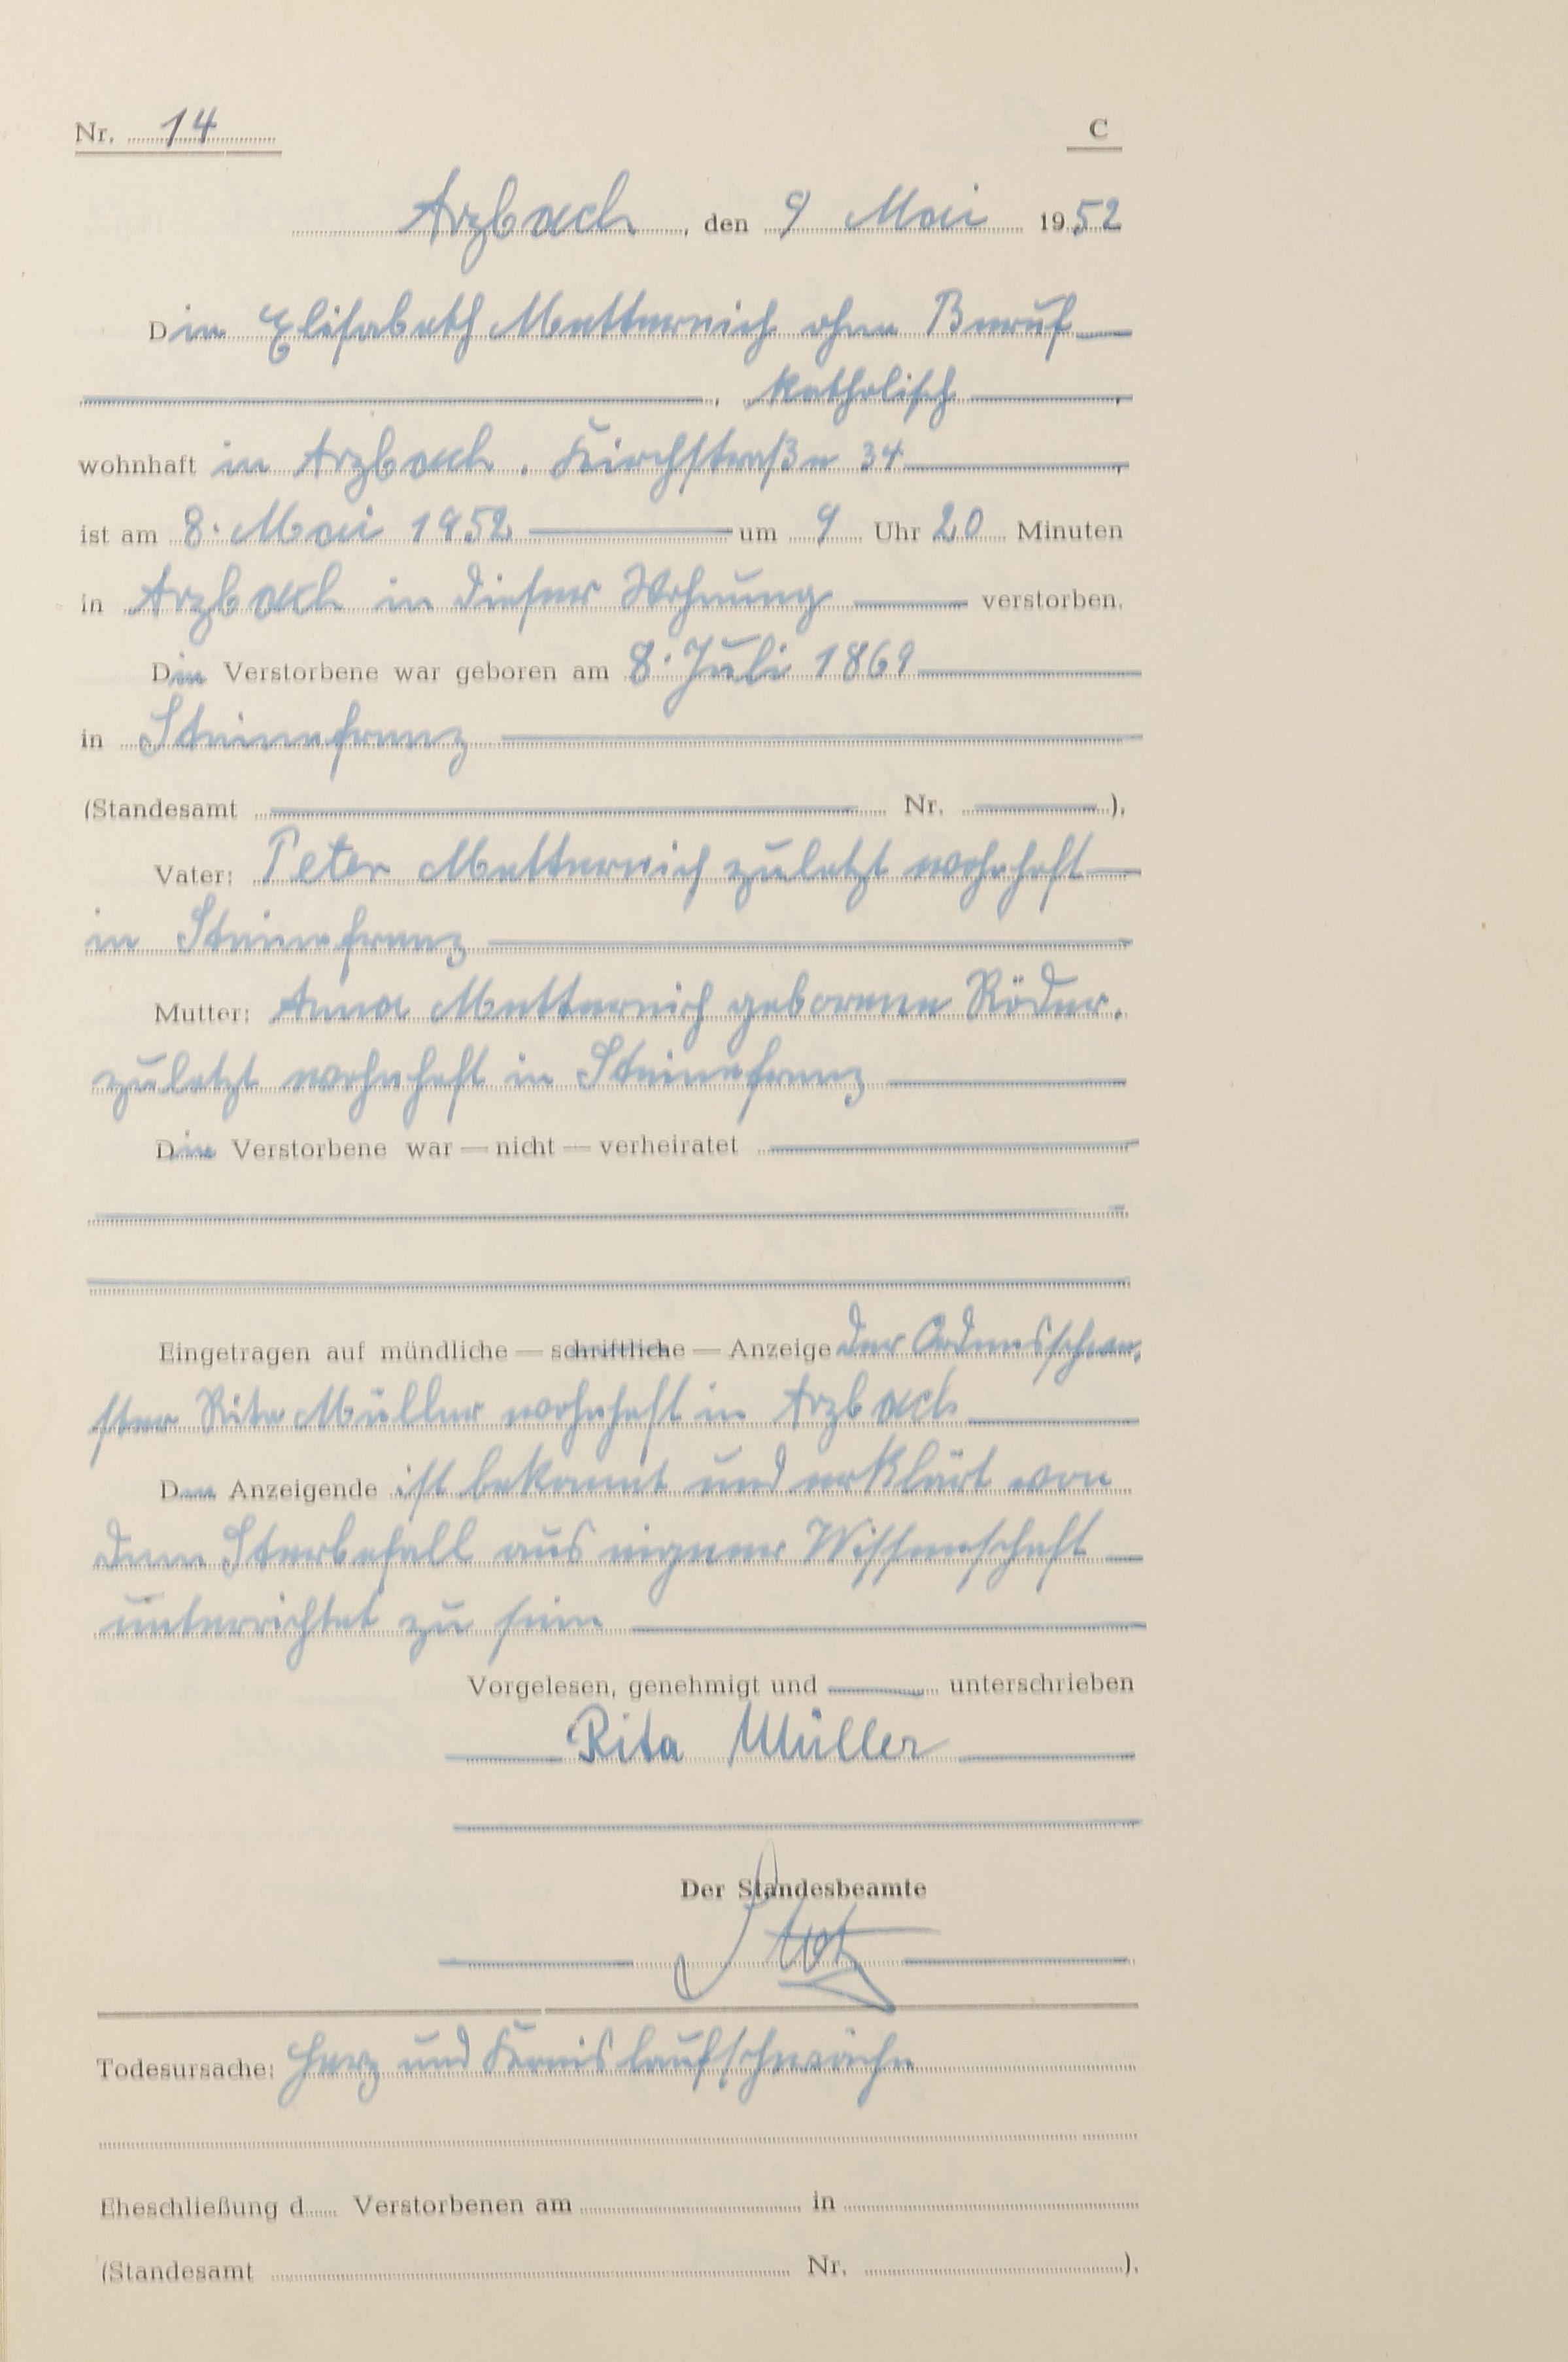 Nr. 14
C
Arzbach, den 9 Mai 1952
Die Elisabeth Metternich ohne Beruf
, katholisch ,
wohnhaft in Arzbach, Kirchstraße 34 ,
ist am 8. Mai 1952 um 9 Uhr 20 Minuten
in Arzbach in dieser Wohnung verstorben.
Die Verstorbene war geboren am 8. Juli 1869
in Steinefrenz
(Standesamt Nr. ).
Vater: Peter Metternich zuletzt wohnhaft
in Steinefrenz
Mutter: Anna Metternich geborene Röder,
zuletzt wohnhaft in Steinefrenz
Die Verstorbene war — nicht — verheiratet
Eingetragen auf mündliche — schriftliche — Anzeige der Ordensschwe-
ster Rita Müller wohnhaft in Arzbach
Der Anzeigende ist bekannt und erklärt von
dem Sterbefall aus eigener Wissenschaft
unterrichtet zu sein
Vorgelesen, genehmigt und unterschrieben
Rita Müller
Der Standesbeamte
Todesursache: Herz und Kreislaufschwäche
Eheschließung d Verstorbenen am in
(Standesamt Nr. ).